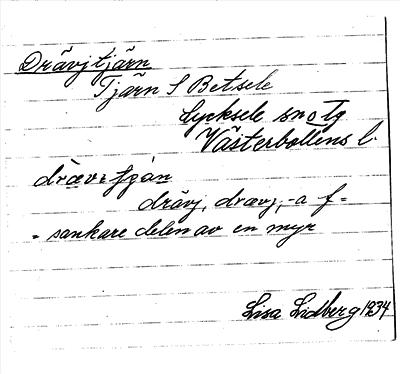 Drävjtjärn
Tjärn S Betsele
Lycksele sn o tg
Västerbottens l.
drävj, drævj, -a f =
= sankare delen av en myr
Lisa Lidberg 1934